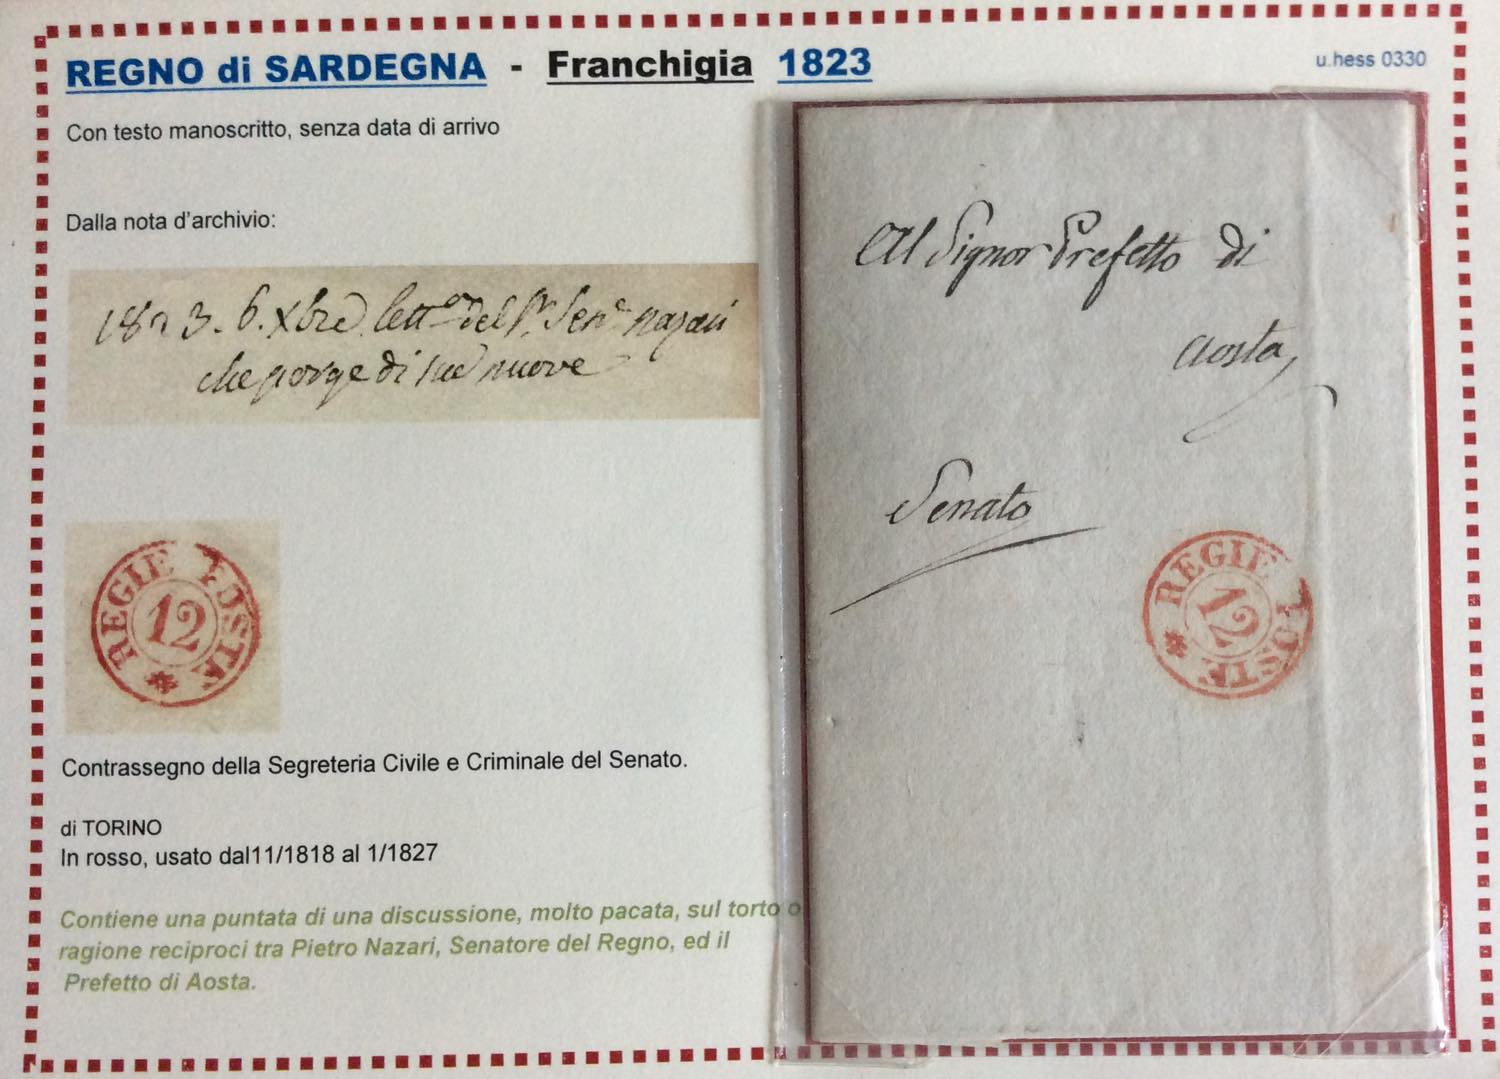 REGNO di SARDEGNA - Franchigia 1823
u.hess 0330
Con testo manoscritto, senza data di arrivo
Dalla nota d'archivio:
1823. 6. Xbre lett.ra del Sr. Senre Nazari
che porge di sue nuove
REGIE POSTE
12
Contrassegno della Segreteria Civile e Criminale del Senato.
di TORINO
In rosso, usato dal11/1818 al 1/1827
Contiene una puntata di una discussione, molto pacata, sul torto o
ragione reciproci tra Pietro Nazari, Senatore del Regno, ed il
Prefetto di Aosta.
Al Signor Prefetto di
Aosta
Senato
REGIE POSTE
12